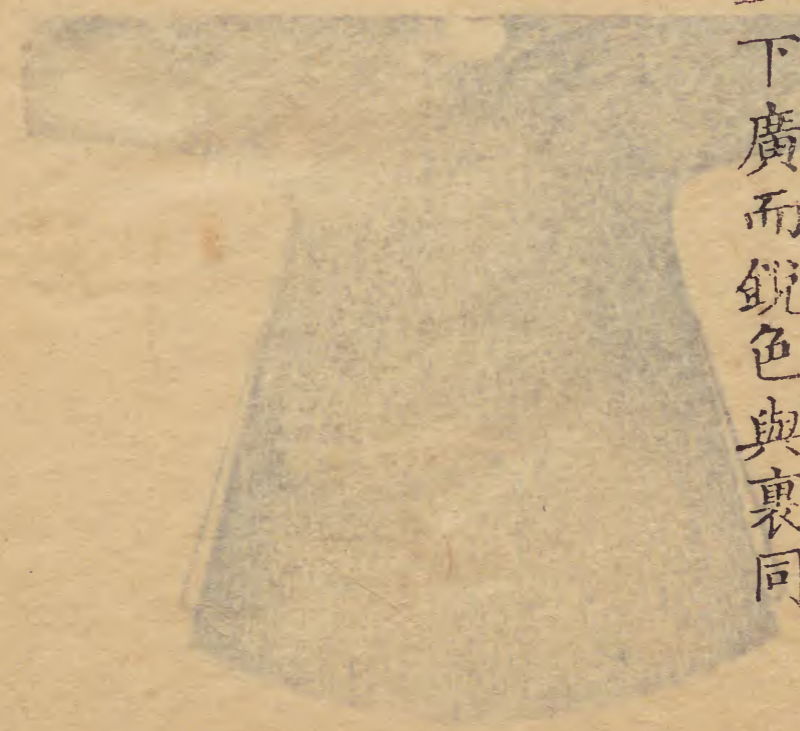 下廣而鋭色與裏同